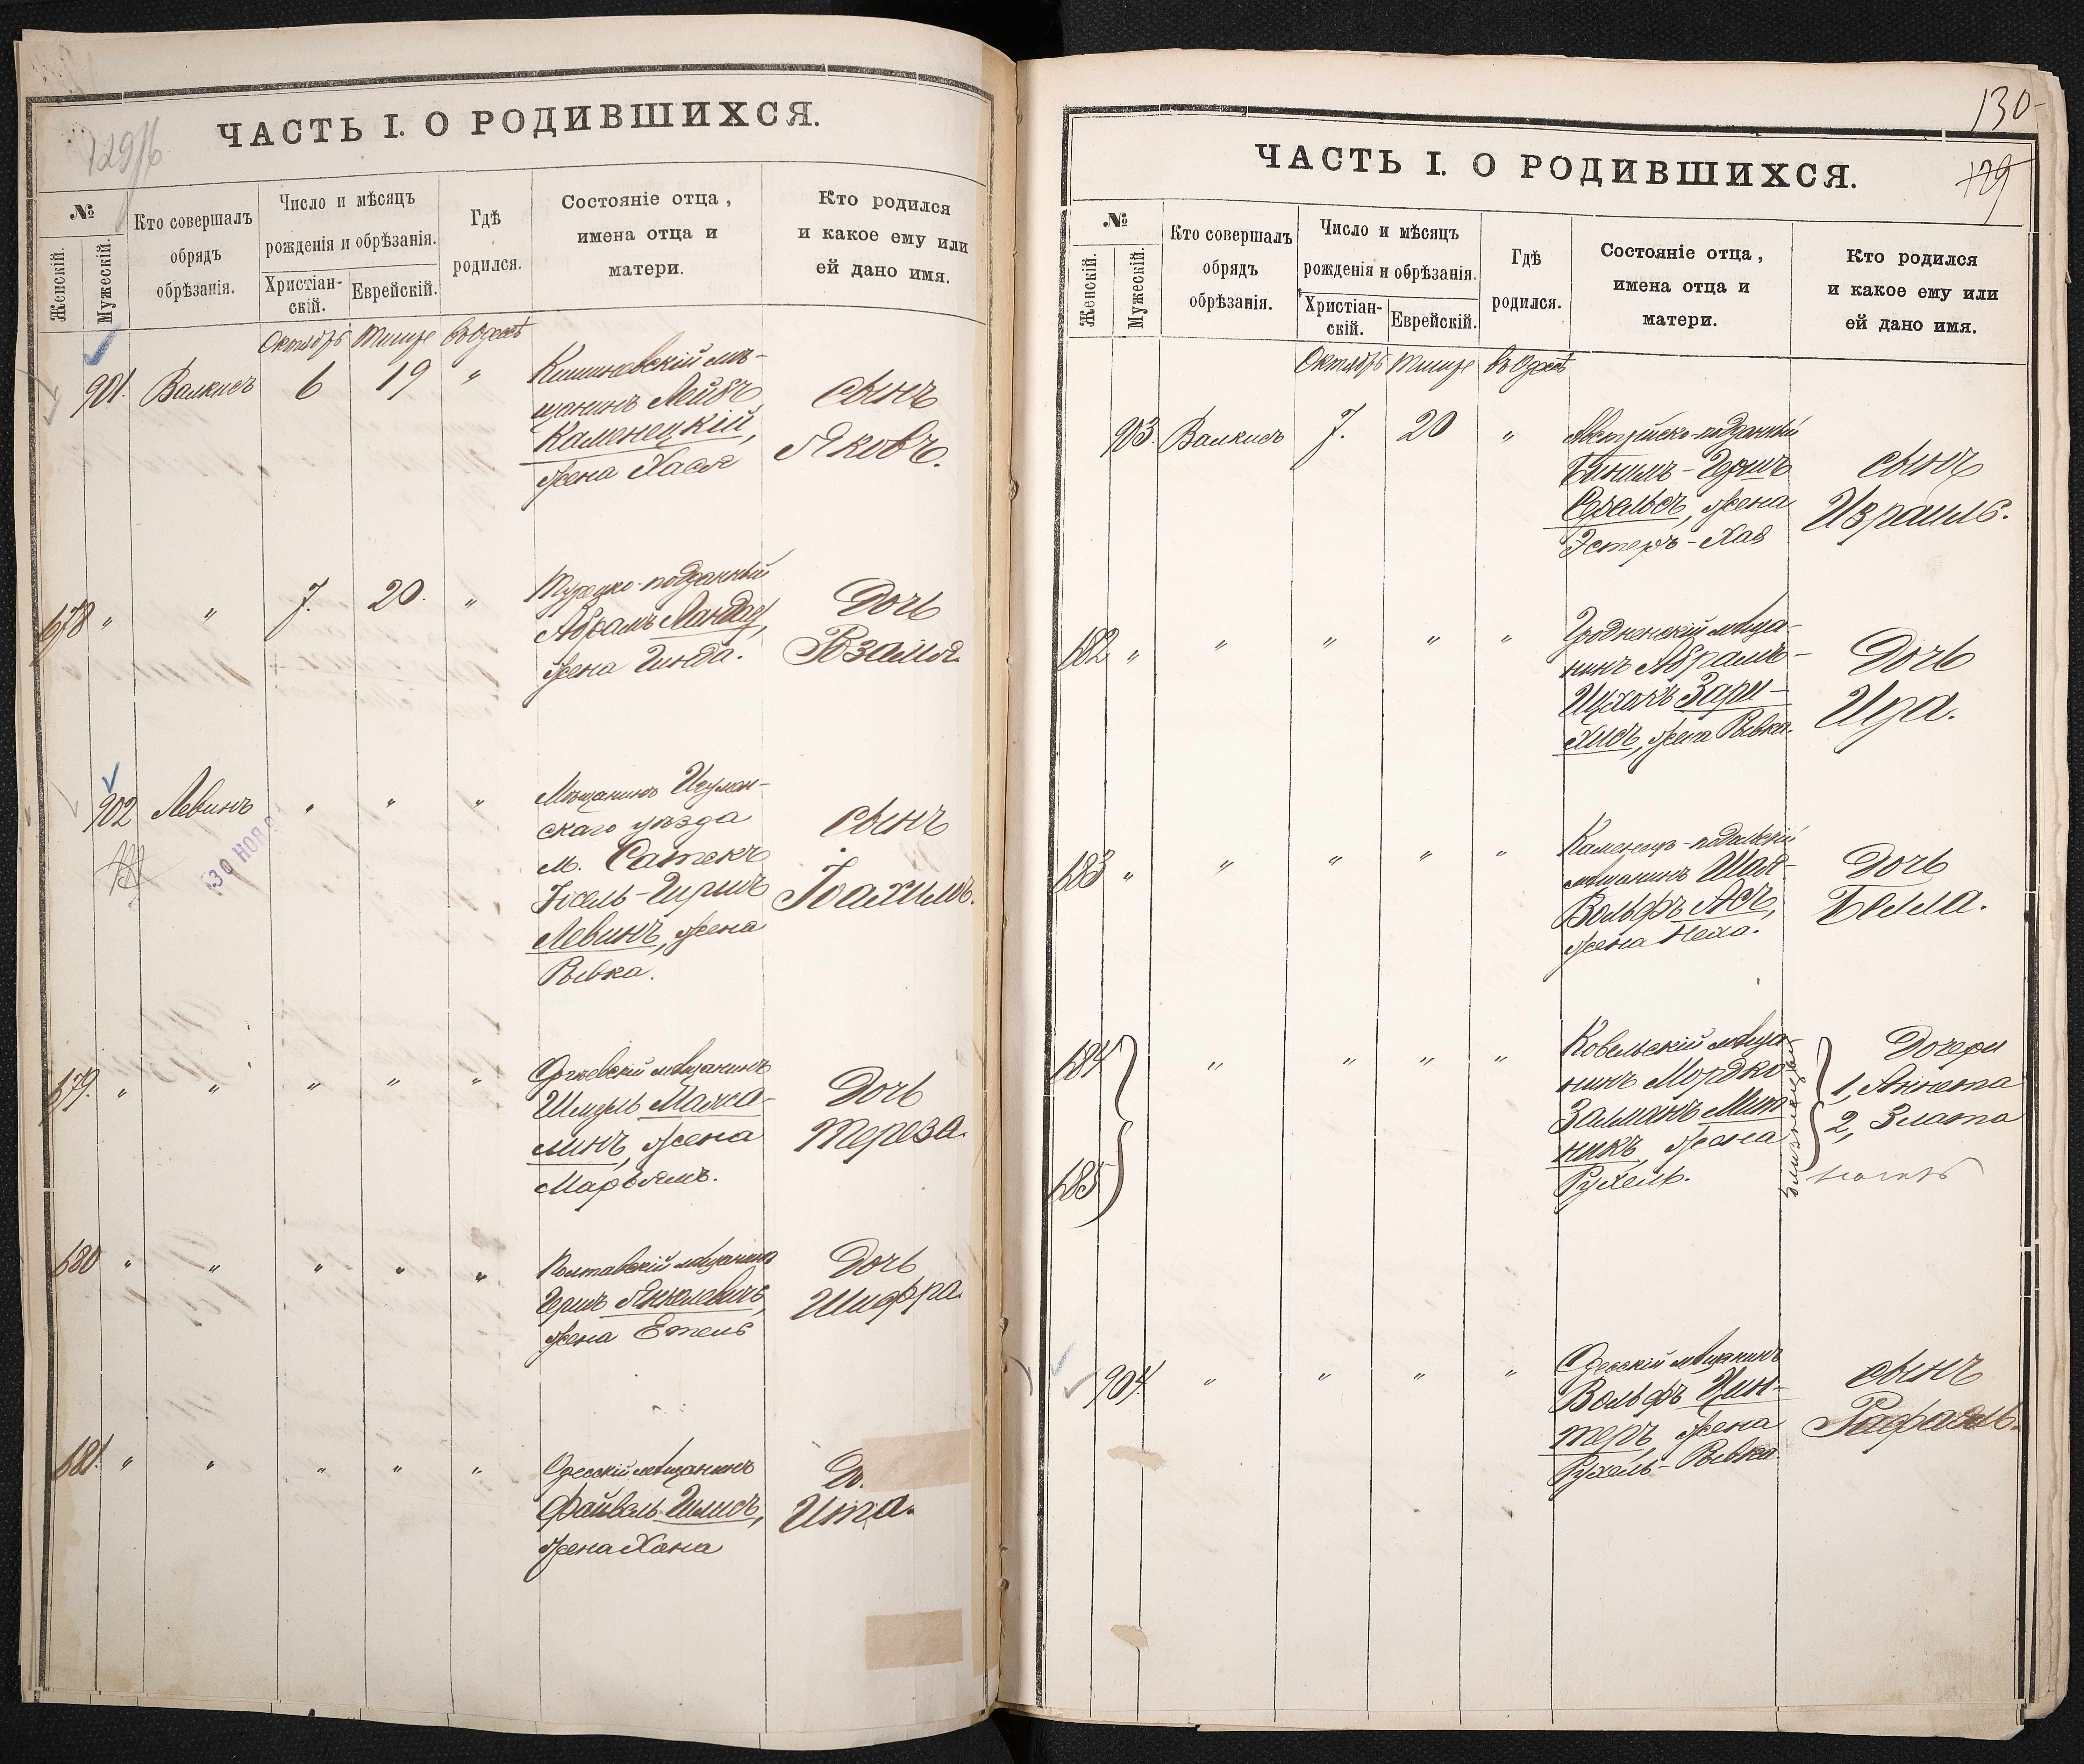 129/б
ЧАСТЬ I. О РОДИВШИХСЯ.
№
Женскій.
Мужескій.
Кто совершалъ
обрядъ
обрѣзанія.
Число и мѣсяцъ
рожденія и обрѣзанія.
Христіан-
скій.
Еврейскій.
Гдѣ
родился.
Состояніе отца,
имена отца и
матери.
Кто родился
и какое ему или
ей дано имя.
Октябрь Тишре въ Одессѣ
901. Валкисъ 6 19 "
Кишиневскій мѣ-
щанинъ Лейбъ
Каменецкій,
жена Хася
сынъ
Яковъ.
678 " " 7. 20. "
Турецко-подданный
Абрамъ Ландау,
жена Гинда.
Дочь
Розалія.
902 Левинъ " " "
30 НОЯБ
Мѣщанинъ Игумен-
скаго уѣзда
м.
Іосель-Гиршъ
Левинъ, жена
Ривка.
сынъ
Іоахимъ.
679. " " " " "
Оргѣевскій мѣщанинъ
Шмуль
линъ, жена
Марьямъ.
Дочь
Тереза.
680 " " " " "
Полтавскій мѣщанинъ
Гершъ Янкелевичъ,
жена Етель
Дочь
Шифра.
681. " " " " "
Одесскій мѣщанинъ
Файвель
жена Хана
До.
Ита.
130
129
ЧАСТЬ I. О РОДИВШИХСЯ.
№
Женскій.
Мужескій.
Кто совершалъ
обрядъ
обрѣзанія.
Число и мѣсяцъ
рожденія и обрѣзанія.
Христіан-
скій.
Еврейскій.
Гдѣ
родился.
Состояніе отца,
имена отца и
матери.
Кто родился
и какое ему или
ей дано имя.
Октябрь Тишре въ Одессѣ
903. Валкисъ 7. 20 "
Австрійско-подданный
Гершъ
жена
Эстеръ-Хая
сынъ
Израиль.
682 " " " " "
Гродненскій мѣща-
нинъ Абрамъ-
Ицхокъ Зари-
хисъ, жена Ривка.
Дочь
Ида.
683 " " " " "
Каменецъ-подольскій
мѣщанинъ Шая-
Вольфъ Асъ,
жена Неха.
Дочь
Белла.
684
685
" " " "
Ковельскій мѣща-
нинъ Мордко
Залманъ Мит-
никъ, жена
Рухель.
Дочери
1, Аннета
2, Злата
904. " " " "
Одесскій мѣщанинъ
Вольфъ Цин-
теръ, жена
Рухель-Ривка.
сынъ
Рафаель.